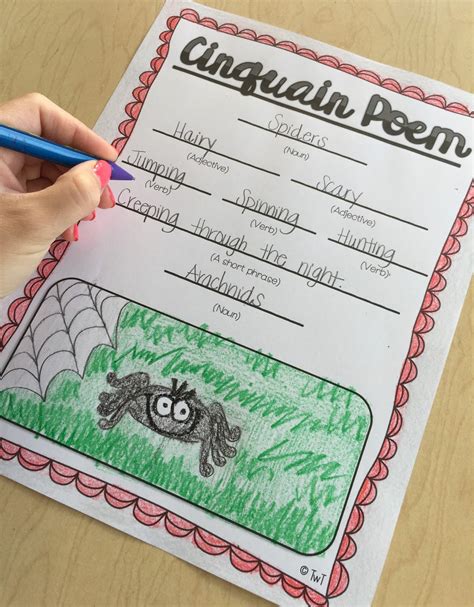 Cinquain Poem
Spiders
(Noun)
Hairy Scary
(Adjective) (Adjective)
Jumping Spinning Hunting
(Verb) (Verb) (Verb)
Creeping through the night.
(A short phrase)
Arachnids
(Noun)
© TwT